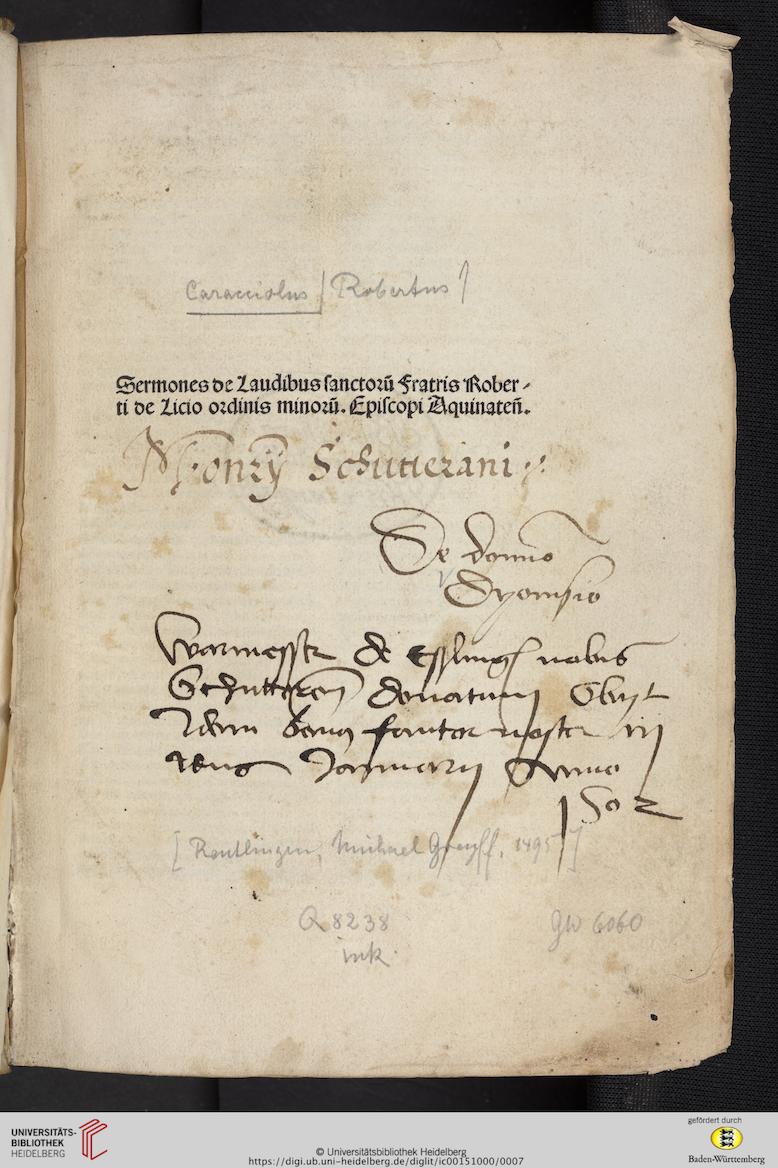 Caracciolus [Robertus]
Sermones de Laudibus sanctorū Fratris Rober-
ti de Licio ordinis minorū. Episcopi Aquinateñ.
Schutterani
De domō
Dyonisio
de Esslingē nobis
donatum Obijt
noster iij
Jdus Januarij Anno
1502
[Reutlingen, Michael Greyff, 1495]
Q 8238
Ink.
GW 6060
UNIVERSITÄTS-
BIBLIOTHEK
HEIDELBERG
© Universitätsbibliothek Heidelberg
https://digi.ub.uni-heidelberg.de/diglit/ic00151000/0007
gefördert durch
Baden-Württemberg